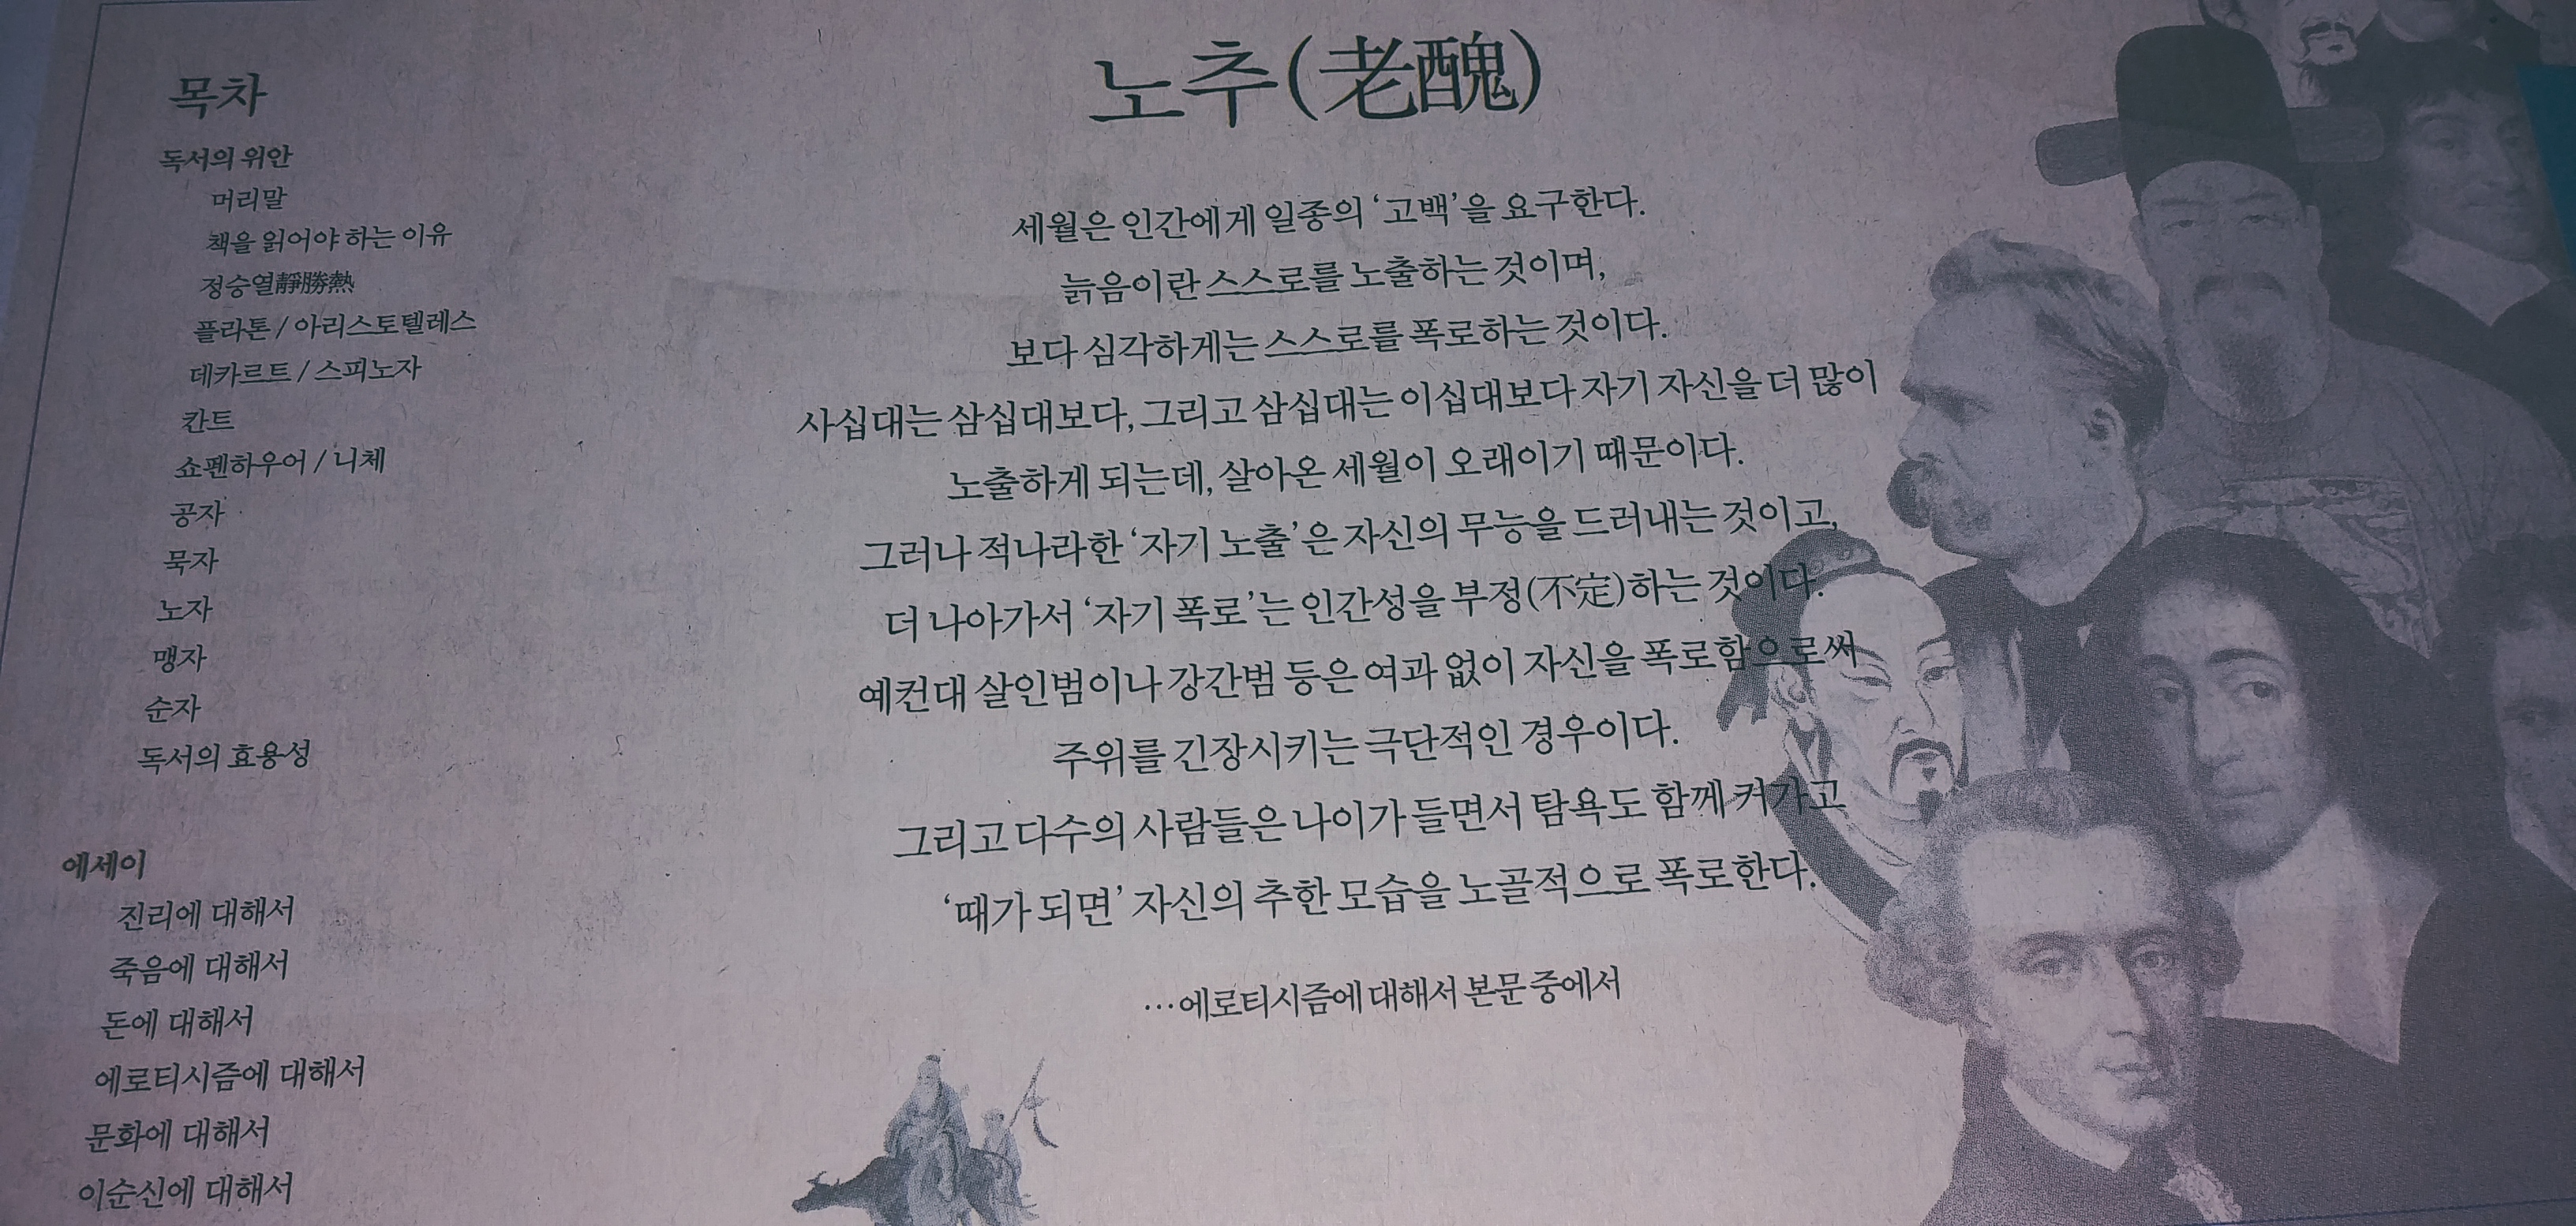 목차
독서의 위안
머리말
책을 읽어야 하는 이유
정승열靜勝熱
플라톤 / 아리스토텔레스
데카르트 / 스피노자
칸트
쇼펜하우어 / 니체
공자
묵자
노자
맹자
순자
독서의 효용성
에세이
진리에 대해서
죽음에 대해서
돈에 대해서
에로티시즘에 대해서
문화에 대해서
이순신에 대해서
노추(老醜)
세월은 인간에게 일종의 ‘고백’을 요구한다.
늙음이란 스스로를 노출하는 것이며,
보다 심각하게는 스스로를 폭로하는 것이다.
사십대는 삼십대보다, 그리고 삼십대는 이십대보다 자기 자신을 더 많이
노출하게 되는데, 살아온 세월이 오래이기 때문이다.
그러나 적나라한 ‘자기 노출’은 자신의 무능을 드러내는 것이고,
더 나아가서 ‘자기 폭로’는 인간성을 부정(不定)하는 것이다.
예컨대 살인범이나 강간범 등은 여과 없이 자신을 폭로함으로써
주위를 긴장시키는 극단적인 경우이다.
그리고 다수의 사람들은 나이가 들면서 탐욕도 함께 커가고
‘때가 되면’ 자신의 추한 모습을 노골적으로 폭로한다.
…에로티시즘에 대해서 본문 중에서